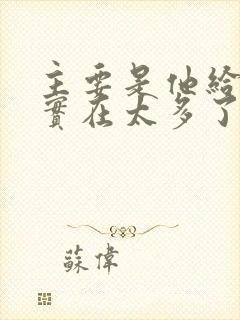 主要是他給
實在太多了
蘇偉